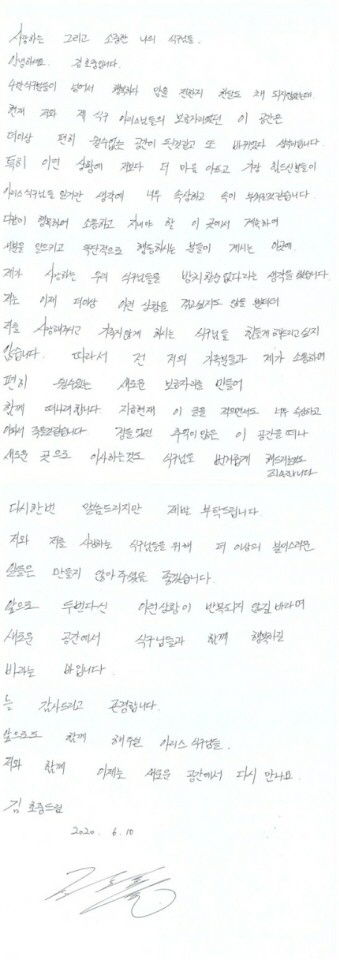 사랑하는 그리고 소중한 나의 식구님들.
안녕하세요. 김호중입니다.
수만식구님들이 넘어서 행복하다 말을 전한지 한달도 채 되지않았는데.
현재 저와 제 식구 아리스님들의 보금자리였던 이 공간은
더이상 편히 쉴수없는 공간이 된것같고 또 바뀌었다 생각합니다.
특히 이런 상황에 저보다 더 마음 아프고 가장 힘드신분들이
아리스식구님들 일거란 생각에 너무 속상하고 속이 부서지는것같습니다.
다같이 행복하며 소통하고 지내야 할 이 곳에서 계속하여
분란을 만드시고 독단적으로 행동하시는 분들이 계시는 이곳에.
제가 사랑하는 우리 식구님들을 방치할수없다라는 생각을 했습니다.
저는 이제 더이상 이런 상황을 겪고싶지도 않을 뿐더러
저를 사랑해주시고 가족이랑 같이 하시는 식구님들 힘들게 해드리고싶지
않습니다. 따라서 전 저의 가족분들과 제가 소통하며
편히 쉴수있는 새로운 보금자리를 만들어
함께 떠나려 합니다. 지금현재 이 글을 적으면서도 너무 속상하고
아파서 죽을것같습니다. 정들었던 추억이많은 이 공간을 떠나
새로운 곳으로 이사하는것도 식구님들 번거롭게 해드리는것도
죄송합니다.
다시한번 말씀드리지만 제발 부탁드립니다.
저와 저를 사랑하는 식구님들을 위해 더 이상의 불미스러운
일들은 만들지 않아주셨으면 좋겠습니다.
앞으로 두번다신 이런상황이 반복되지 않길 바라며
새로운 공간에서 식구님들과 함께 행복하길
바라는 바입니다.
늘 감사드리고 존경합니다.
앞으로도 함께 해주실 아리스 식구님들.
저와 함께 이제는 새로운 공간에서 다시 만나요.
김 호중드림
2020. 6. 10